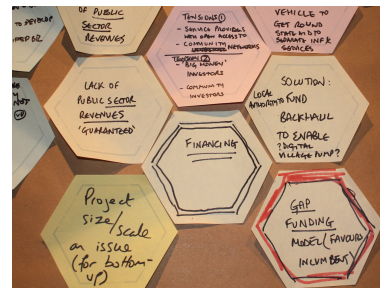 TO DEVELOP
OF PUBLIC
SECTOR
REVENUES
TENSIONS ①
- SERVICE PROVIDERS
WITH OPEN ACCESS TO
- COMMUNITY
NETWORKS
②
- 'BIG MONEY'
INVESTORS
- COMMUNITY
INVESTORS
VEHICLE TO
GET ROUND
STATE AID TO
SEPARATE INFRA
SERVICES
LACK OF
PUBLIC SECTOR
REVENUES
'GUARANTEED'
FINANCING
SOLUTION:
LOCAL
AUTHORITY TO FUND
BACKHAUL
TO ENABLE
? DIGITAL
VILLAGE PUMP?
Project
size/scale
an issue
(for bottom-
up)
GAP
FUNDING
MODEL (FAVOURS
INCUMBENT)